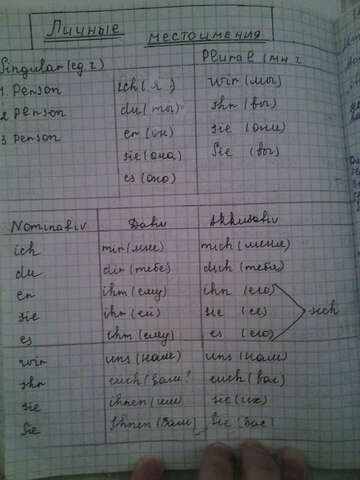 Личные местоимения
Singular (ед.ч Plural (мн.ч
1. Person ich (я) wir (мы)
2 Person du (ты) ihr (вы)
3 Person er (он) sie (они)
sie (она) Sie (вы)
es (оно)
Nominativ Dativ Akkusativ
ich mir (мне) mich (меня)
du dir (тебе) dich (тебя)
er ihm (ему) ihn (его)
sie ihr (ей) sie (её) sich
es ihm (ему) es (его)
wir uns (нам) uns (нам)
ihr euch (вам) euch (вас)
sie ihnen (им) sie (их)
Sie Ihnen (вам) Sie (вас)